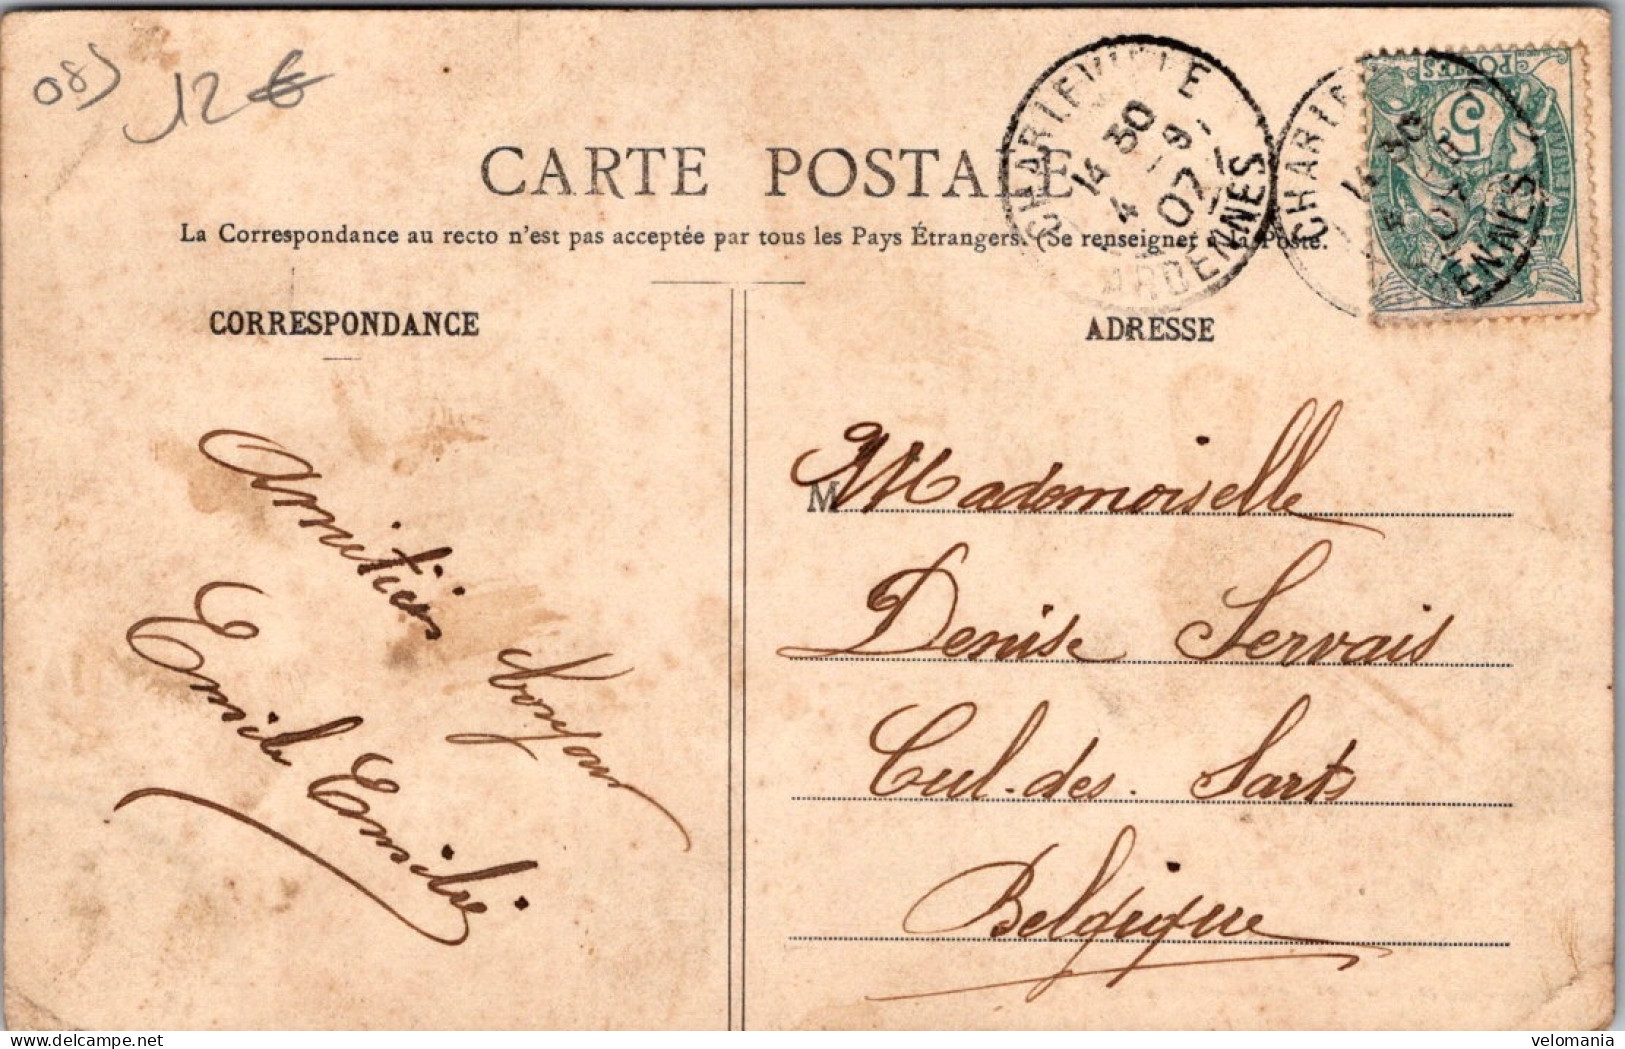 08)
12 €
CARTE POSTALE
La Correspondance au recto n'est pas acceptée par tous les Pays Étrangers. (Se renseigner à la Poste.
CHARLEVILLE
14 30
4 - 9
07
ARDENNES
POSTES
5
CORRESPONDANCE
Amitiés bonjour
Emile Emilie.
ADRESSE
M Mademoiselle
Denise Servais
Cul. des. Sarts
Belgique
delcampe.net
velomania